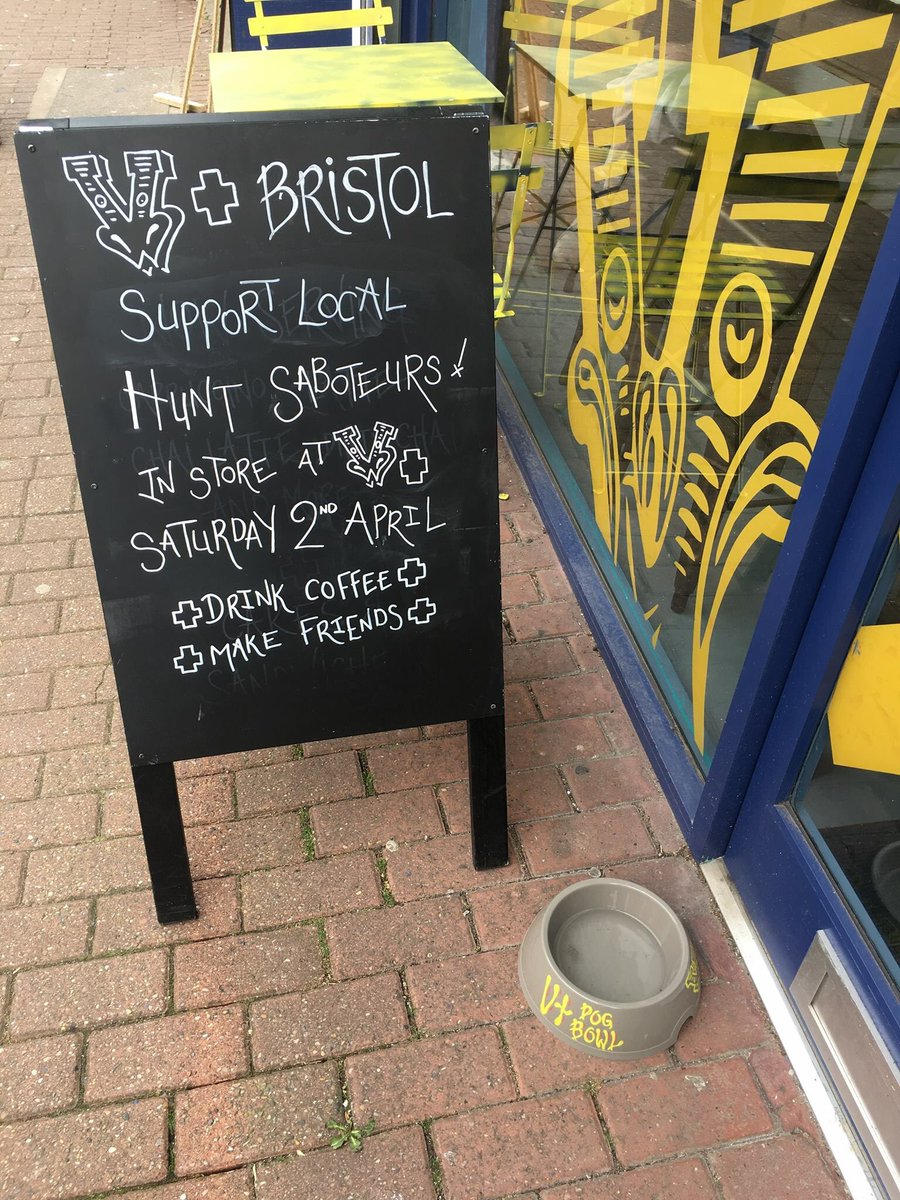 V + BRISTOL
SUPPORT LOCAL
HUNT SABOTEURS!
IN STORE AT V+
SATURDAY 2ND APRIL
+ DRINK COFFEE +
+ MAKE FRIENDS +
V+ DOG
BOWL